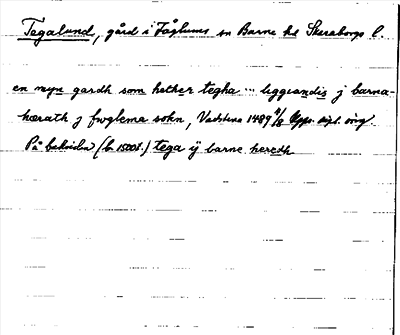 Tegalund, gård i Fåglums sn Barne hd Skaraborgs l.
en myn gardh som hether tegha ... liggiandis j barna-
hærath j fwglema sokn, Vadstena 1489 4/8 Upps. dipl. orig.
På baksidan (b. 1500t.) tega ÿ barne heredh